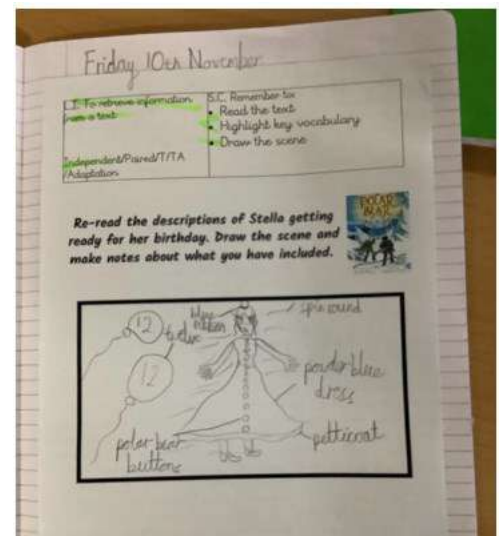 Friday 10th November
L.I. To retrieve information
from a text
Independent/Paired/T/TA
/Adaptation
S.C. Remember to:
• Read the text
• Highlight key vocabulary
• Draw the scene
Re-read the descriptions of Stella getting
ready for her birthday. Draw the scene and
make notes about what you have included.
POLAR
BEAR
12
twelve
12
blue
ribbon
spin round
powder blue
dress
petticoat
polar bear
buttons